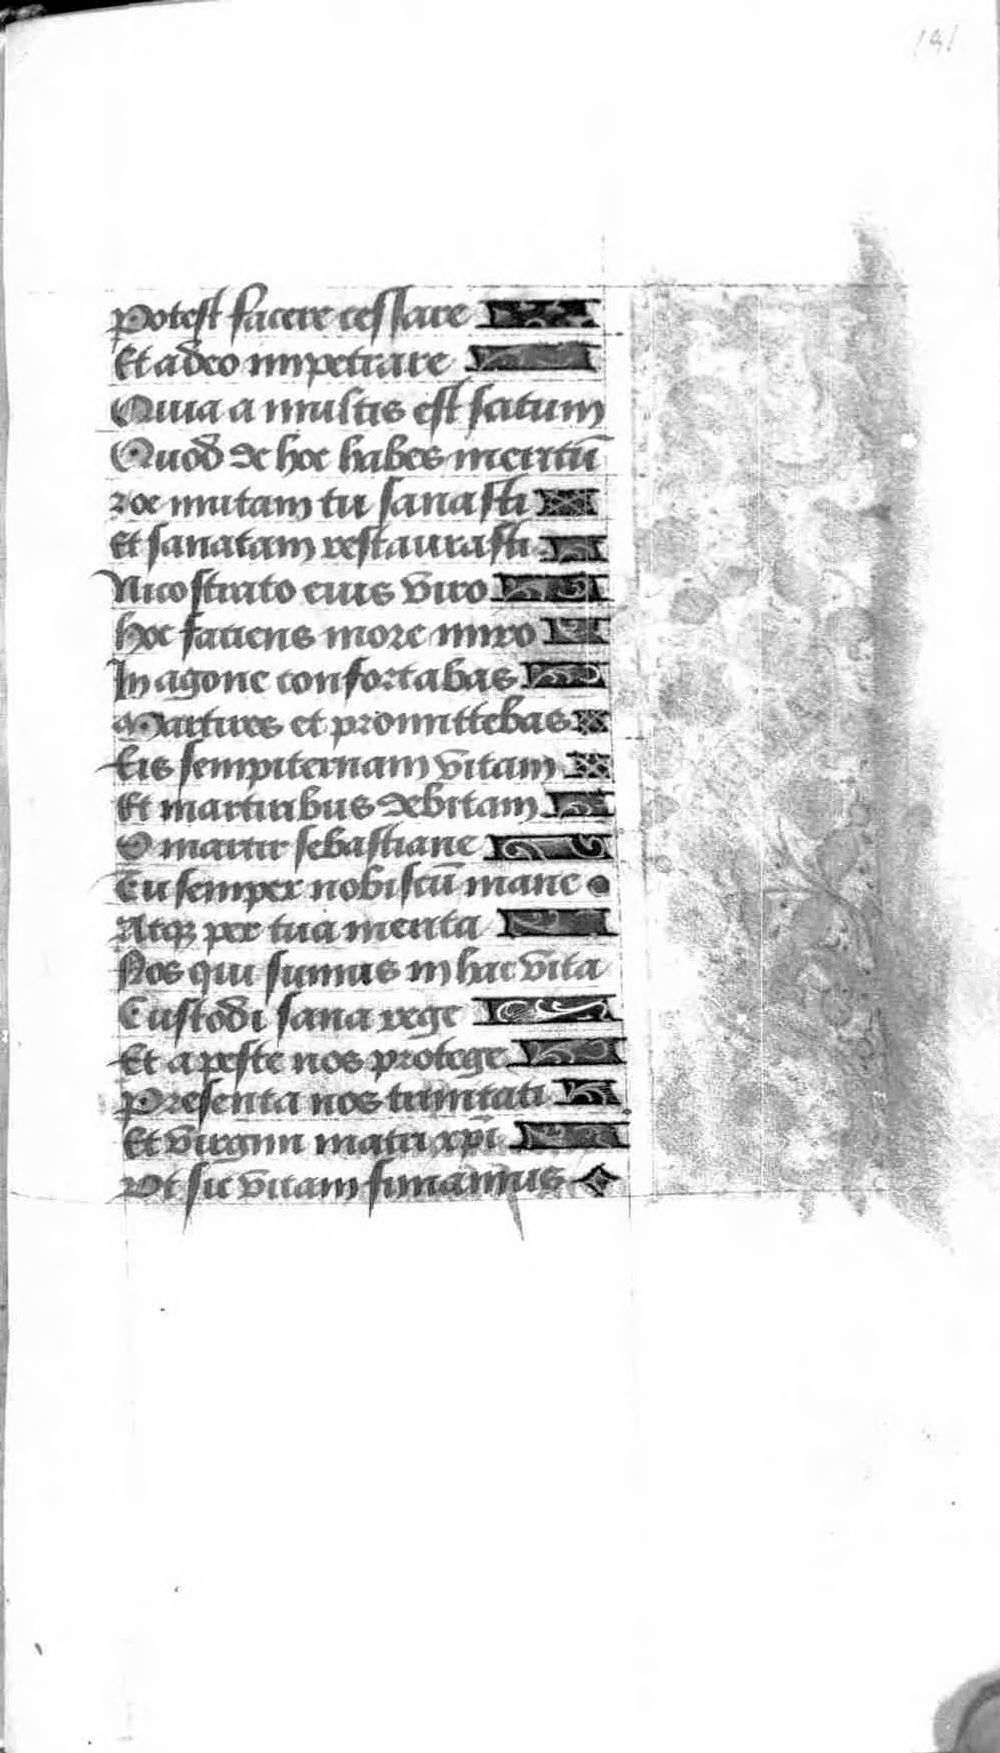 181
Potest facere cessare
Et a deo impetrare
Quia a multis est scitum
Quod de hoc habes meritū
zoe mutam tu sanasti
Et sanatam restaurasti
Nicostrato eius viro
hoc faciens more miro
In agone confortabas
Martires et promittebas
Eis sempiternam vitam
Et martiribus debitam
O martir sebastiane
Tu semper nobiscū mane
Atqꝫ per tua merita
Nos qui sumus in hac vita
Custodi sana rege
Et a peste nos protege
Presenta nos trinitati
Et virgini matri xp̄i
Vt sic vitam finiamus